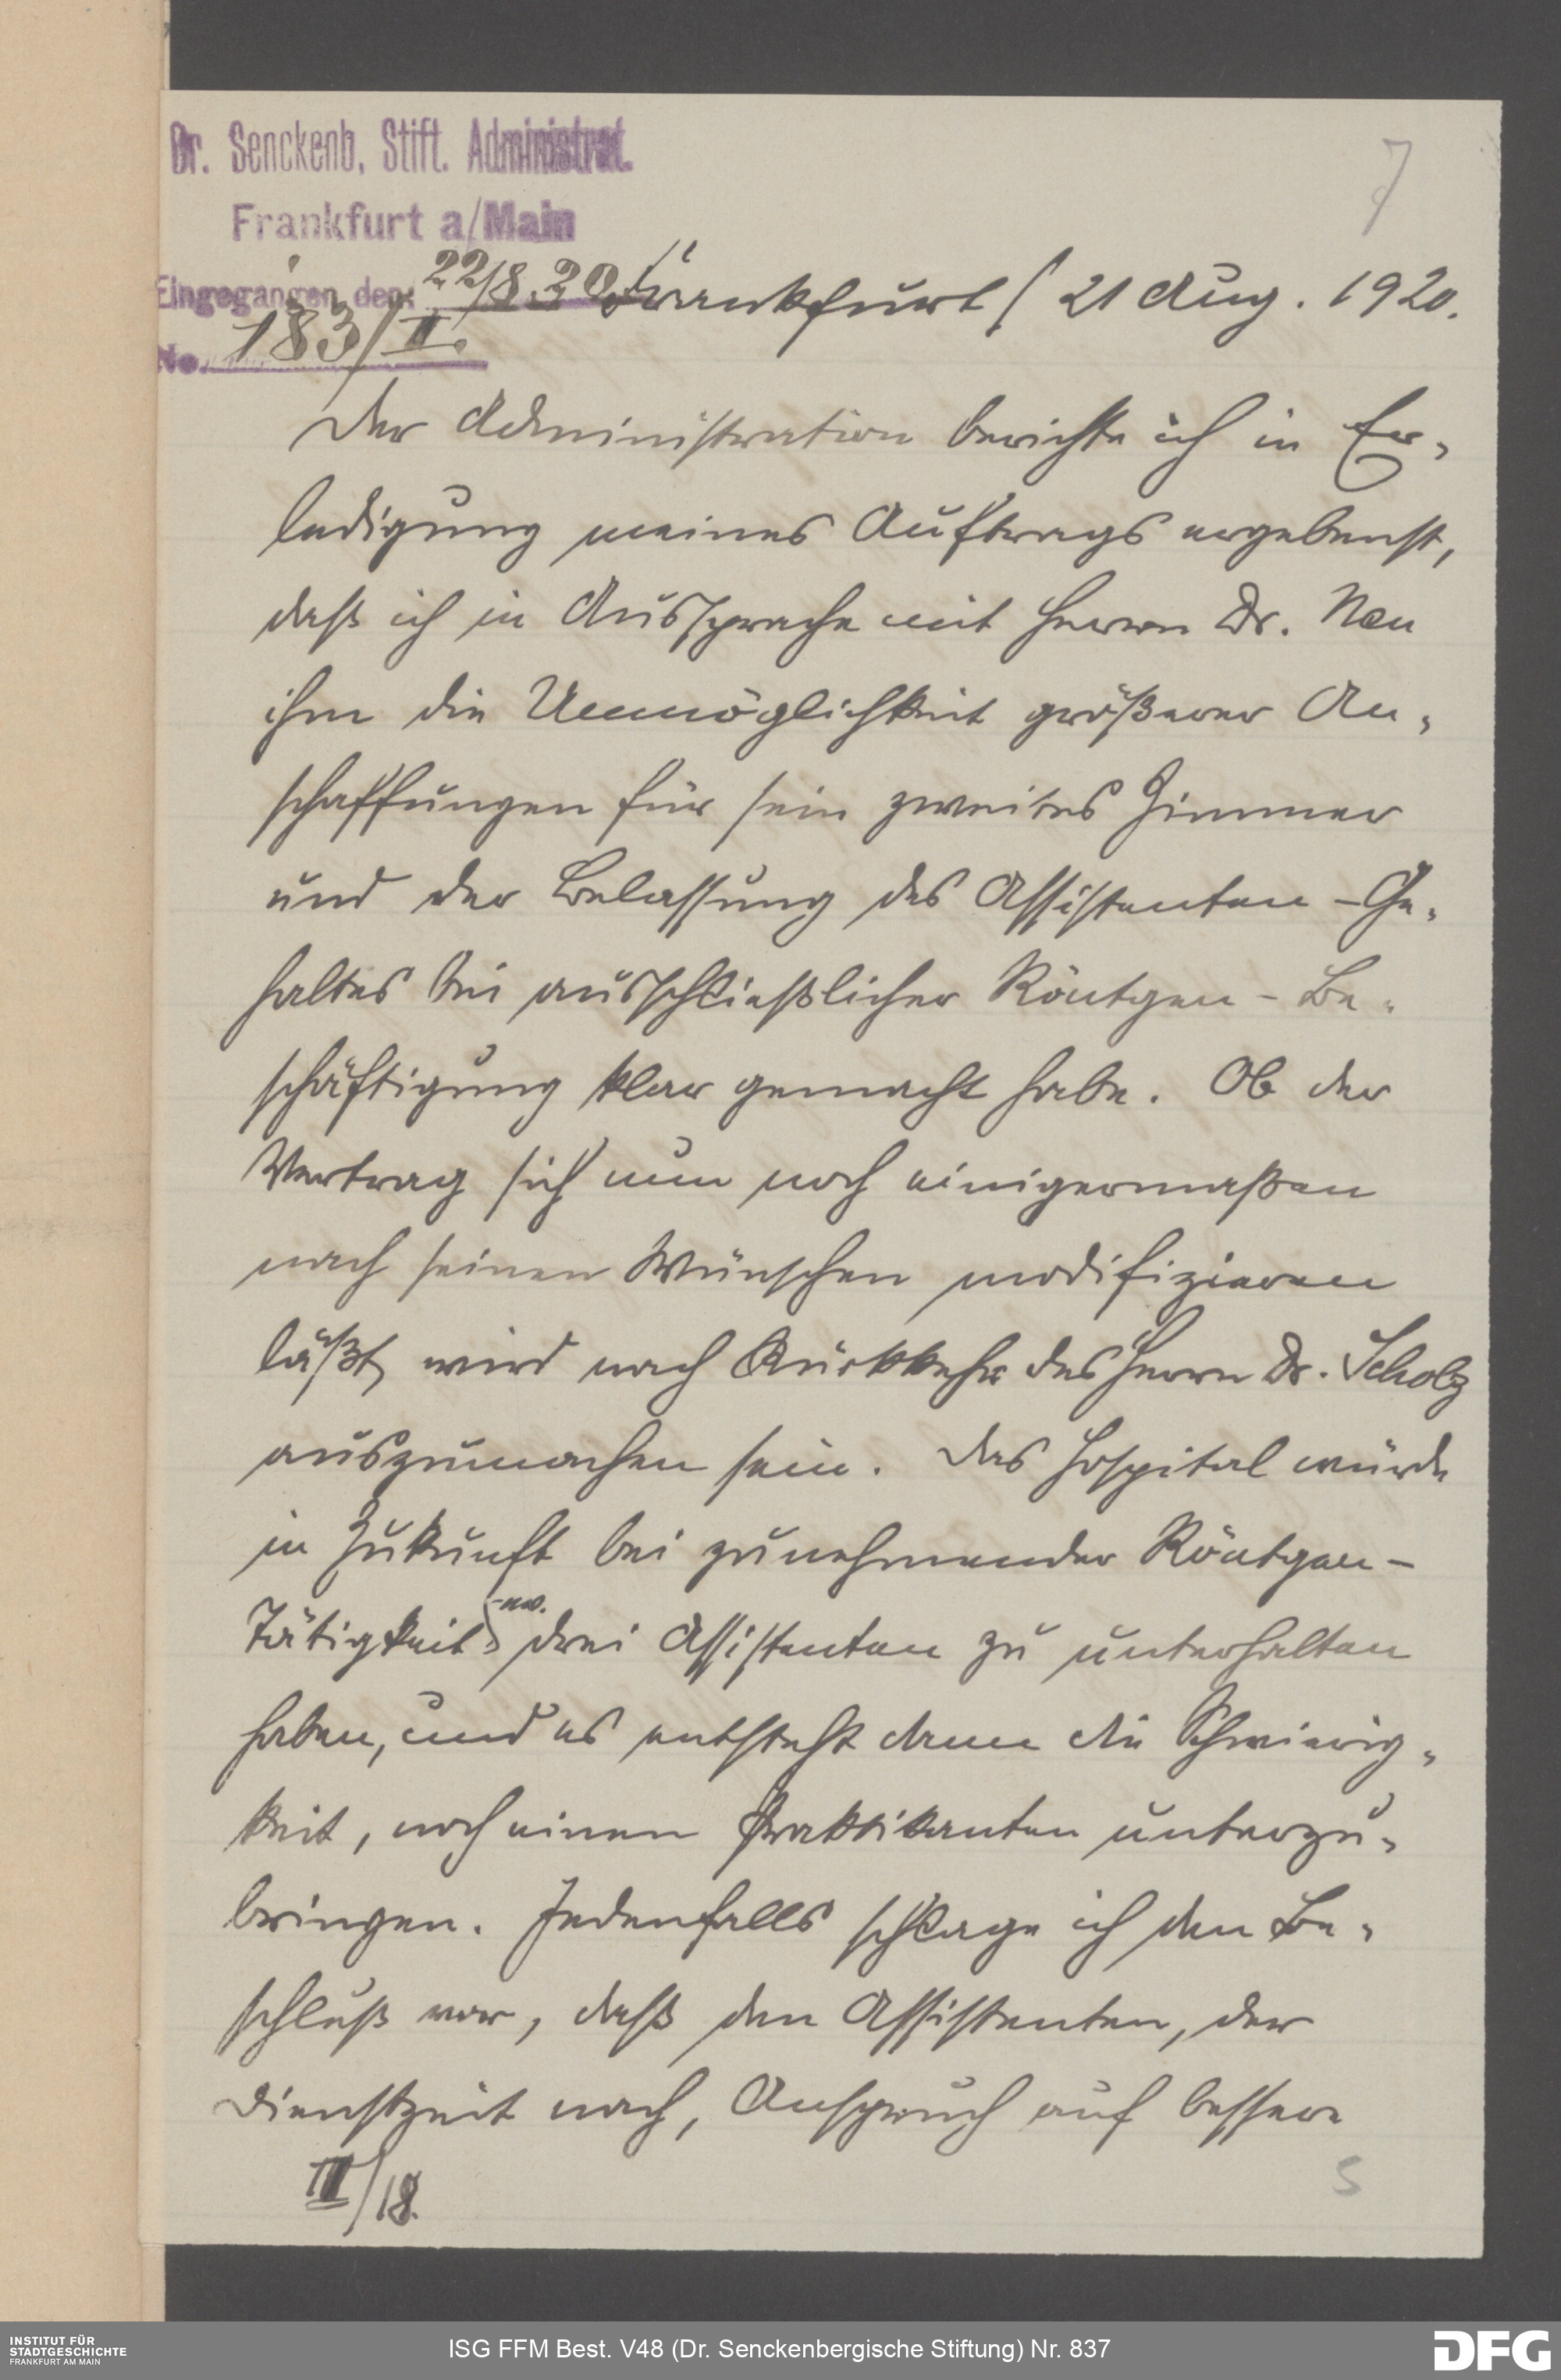 Dr. Senckenb. Stift. Administrat.
Frankfurt a/Main
7
Eingegangen den: 22/8 20
Frankfurt / 21 Aug. 1920.
No. 183/II.
Der Administration berichte ich in Er-
ledigung meines Auftrags ergebenst,
daß ich in Aussprache mit Herrn Dr. Neu
ihm die Unmöglichkeit größerer An-
schaffungen für sein zweites Zimmer
und der Belassung des Assistenten-Ge-
haltes bei ausschließlicher Röntgen-Be-
schäftigung klar gemacht habe. Ob der
Vertrag sich nun noch einigermaßen
nach seinen Wünschen modifizieren
läßt, wird nach Rückkehr des Herrn Dr. Scholz
auszumachen sein. Das Hospital würde
in Zukunft bei zunehmender Röntgen-
Tätigkeit drei Assistenten zu unterhalten
haben, und es entsteht dann die Schwierig-
keit, noch einen Praktikanten unterzu-
bringen. Jedenfalls schlage ich den Be-
schluß vor, daß den Assistenten, der
Dienstzeit nach, Anspruch auf bessere
III/18.
S
INSTITUT FÜR
STADTGESCHICHTE
FRANKFURT AM MAIN
ISG FFM Best. V48 (Dr. Senckenbergische Stiftung) Nr. 837
DFG